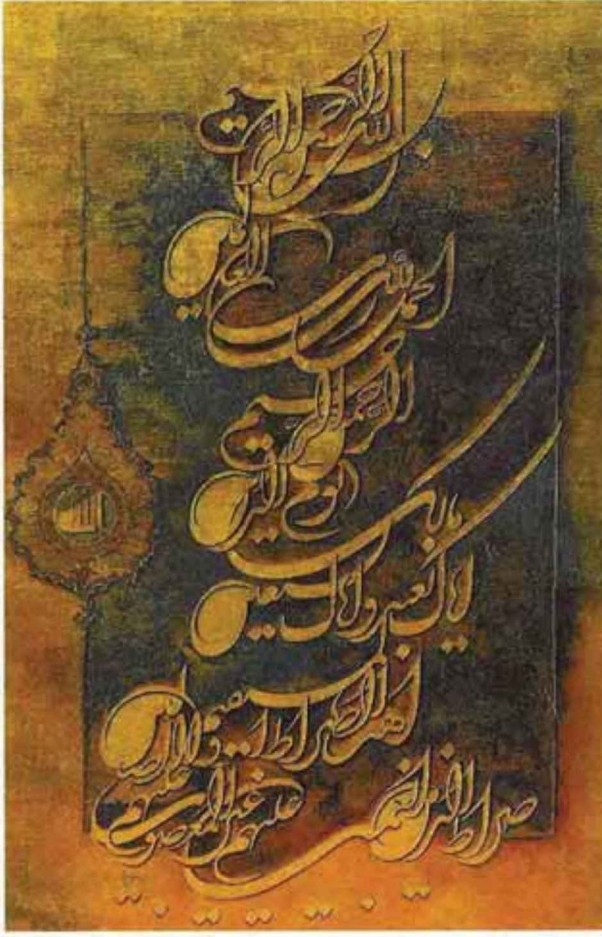 بسم الله الرحمن الرحيم
الحمد لله رب العالمين
الرحمن الرحيم
مالك يوم الدين
اياك نعبد و اياك نستعين
اهدنا الصراط المستقيم
صراط الذين انعمت عليهم غير المغضوب عليهم
و لا الضالين
الله